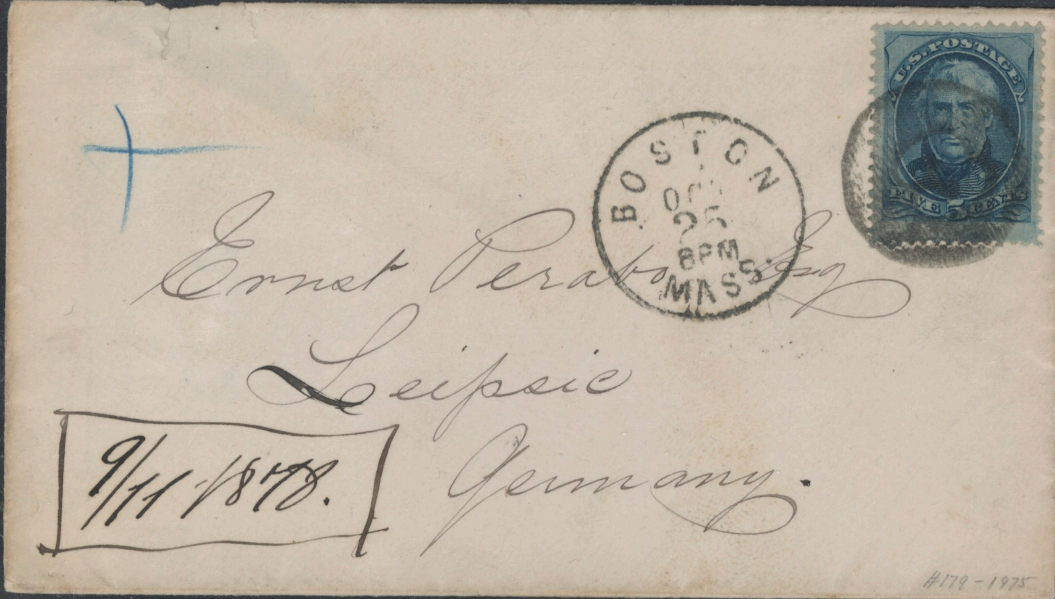 U.S. POSTAGE
FIVE 5 CENTS
BOSTON
OCT
25
8PM
MASS.
Ernst Perabo Esq
Leipsic
Germany.
9/11-1878.
#179-1975